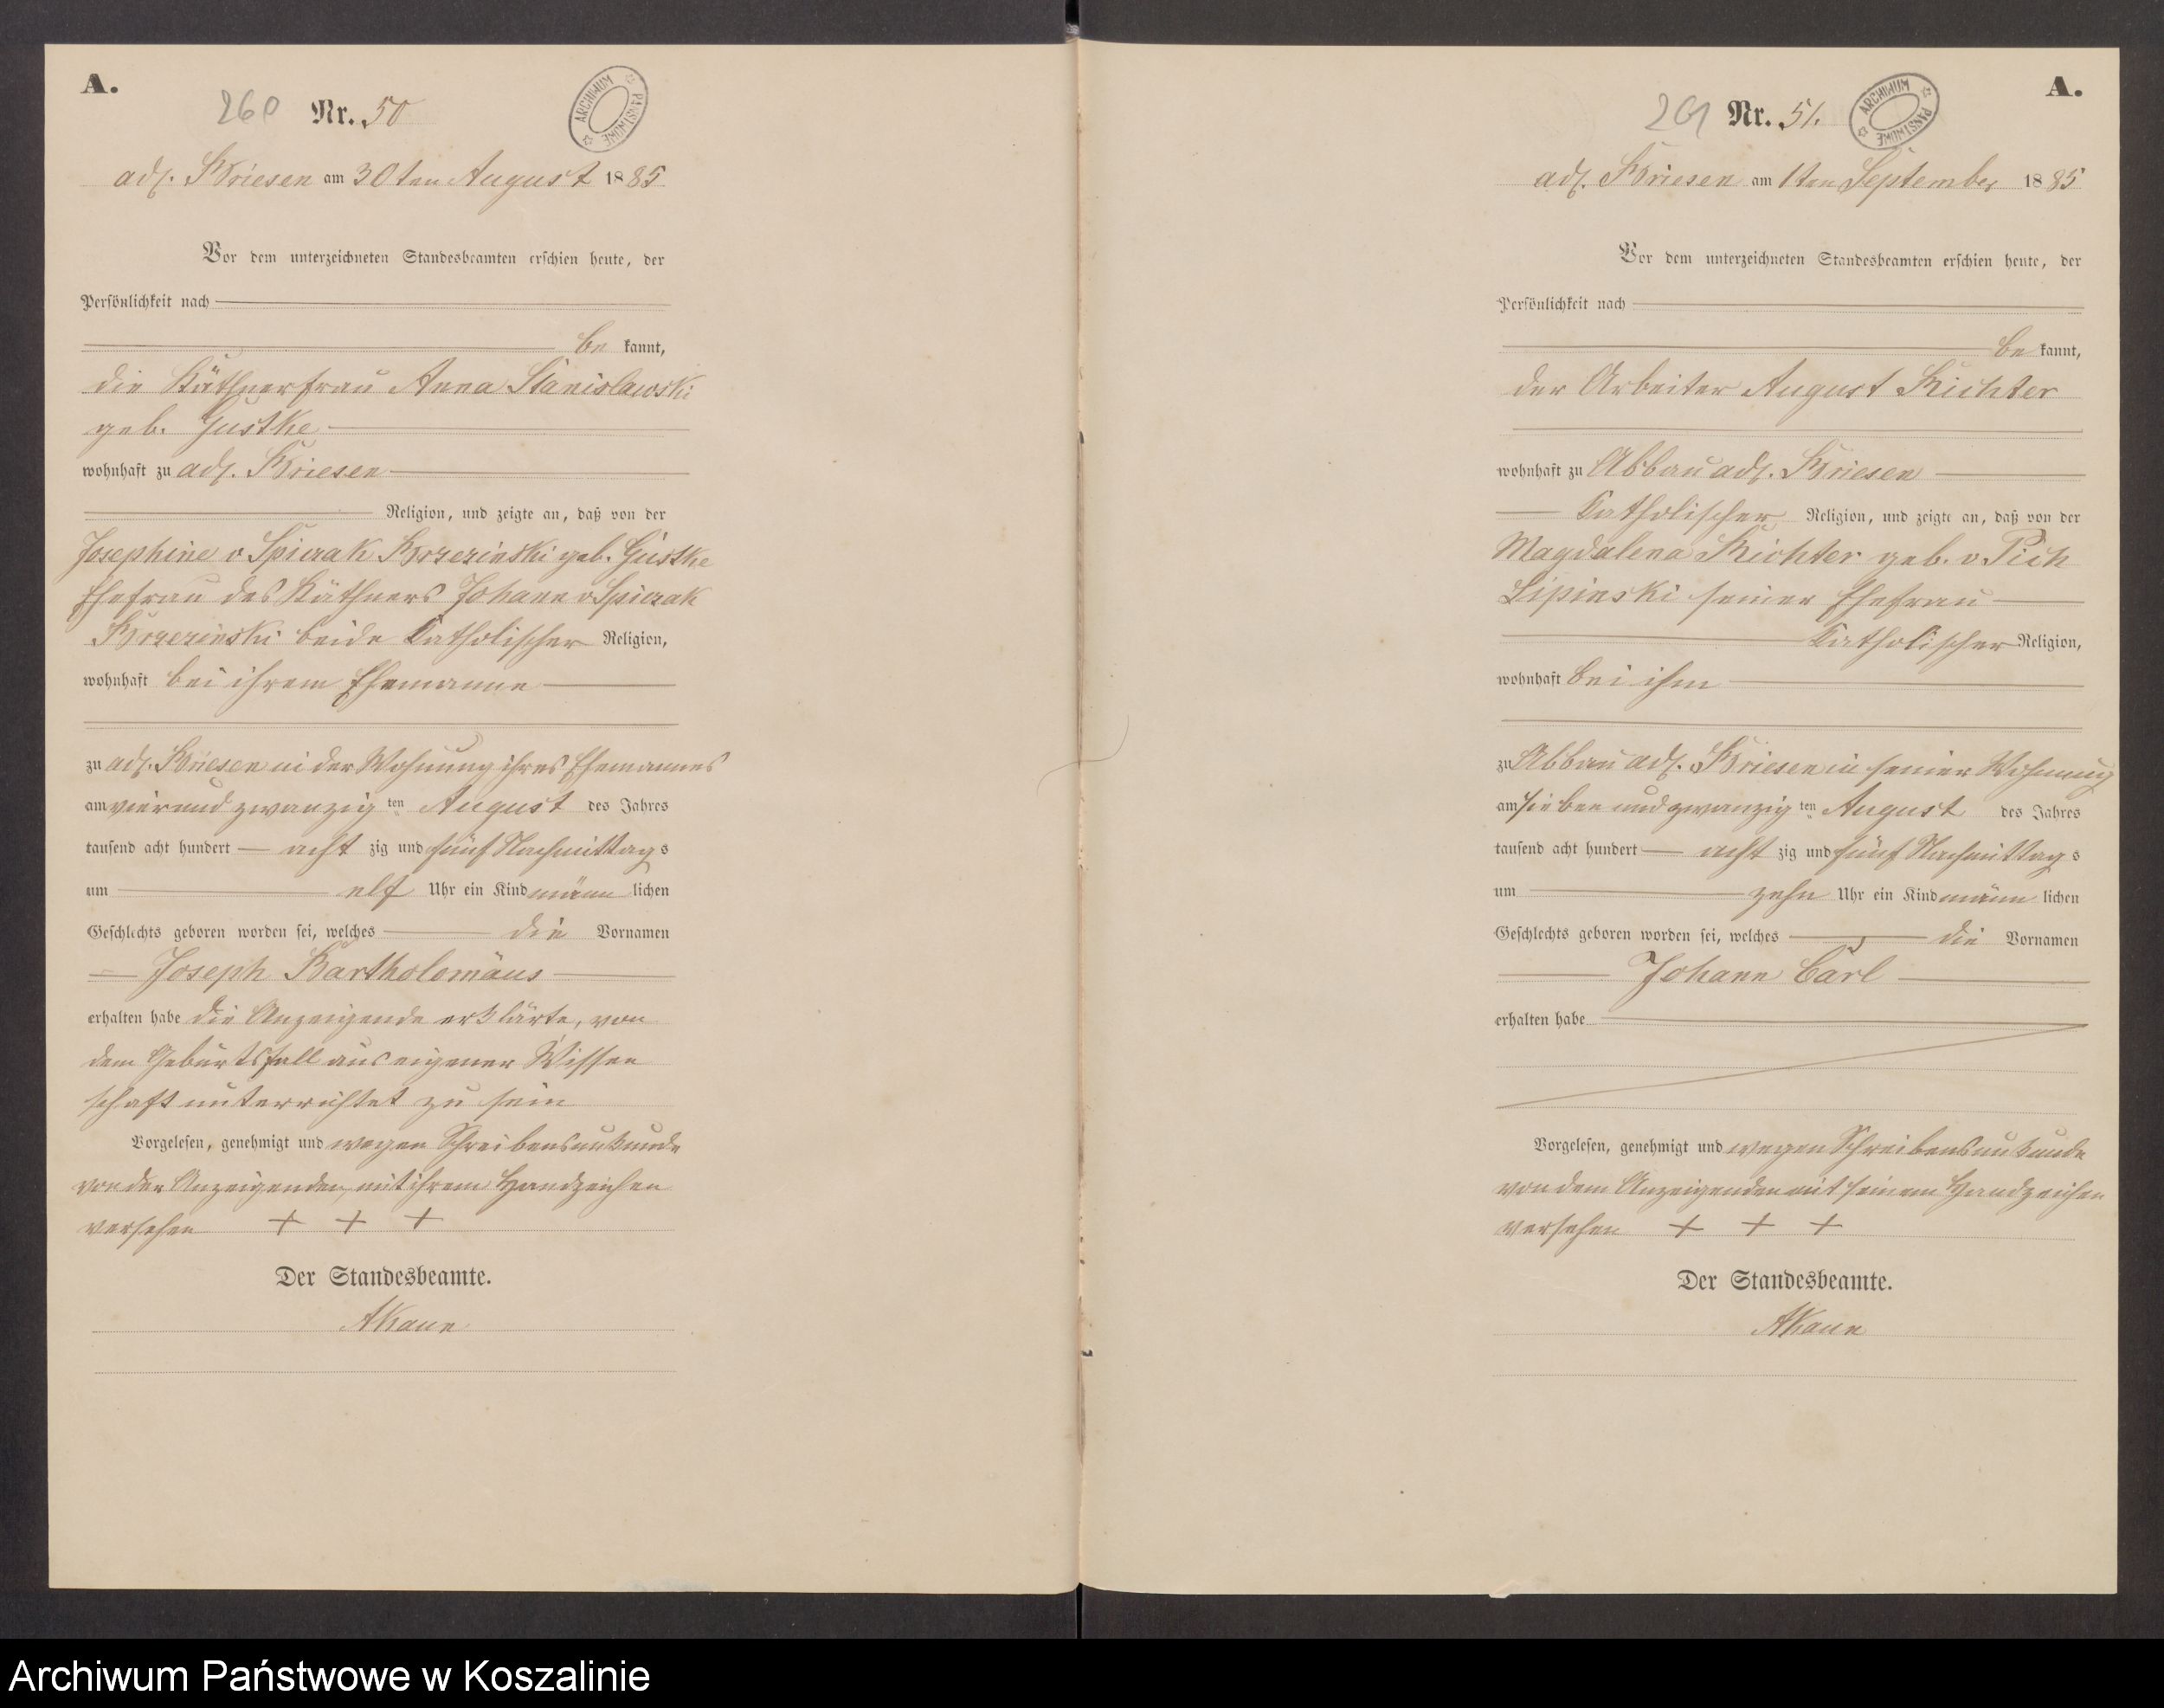 A.
260 Nr. 50
ARCHIWUM PAŃSTWOWE
adl. Briesen am 30ten August 1885
Vor dem unterzeichneten Standesbeamten erschien heute, der
Persönlichkeit nach
be kannt,
die Käthnerfrau Anna Stanislawski
geb. Gustke
wohnhaft zu adl. Briesen
Religion, und zeigte an, daß von der
Josephine v Spiczak Brzezinski geb. Gustke
Ehefrau des Käthners Johann v Spiczak
Brzezinski beide Katholischer Religion,
wohnhaft bei ihrem Ehemanne
zu adl. Briesen in der Wohnung ihres Ehemannes
am vierundzwanzig ten August des Jahres
tausend acht hundert acht zig und fünf Nachmittags
um elf Uhr ein Kind männ lichen
Geschlechts geboren worden sei, welches die Vornamen
Joseph Bartholomäus
erhalten habe die Anzeigende erklärte, von
dem Geburtsfall aus eigener Wissen
schaft unterrichtet zu sein
Vorgelesen, genehmigt und wegen Schreibensunkunde
von der Anzeigenden mit ihrem Handzeichen
versehen + + +
Der Standesbeamte.
A.
261 Nr. 51.
ARCHIWUM PAŃSTWOWE
adl. Briesen am 1ten September 1885
Vor dem unterzeichneten Standesbeamten erschien heute, der
Persönlichkeit nach
be kannt,
der Arbeiter August Richter
wohnhaft zu Abbau adl. Briesen
Katholischer Religion, und zeigte an, daß von der
Magdalena Richter geb. v Pich
Lipinski seiner Ehefrau
Katholischer Religion,
wohnhaft bei ihm
zu Abbau adl. Briesen in seiner Wohnung
am sieben und zwanzig ten August des Jahres
tausend acht hundert acht zig und fünf Nachmittags
um zehn Uhr ein Kind männ lichen
Geschlechts geboren worden sei, welches die Vornamen
Johann Carl
erhalten habe
Vorgelesen, genehmigt und wegen Schreibensunkunde
von dem Anzeigenden mit seinem Handzeichen
versehen + + +
Der Standesbeamte.
Archiwum Państwowe w Koszalinie